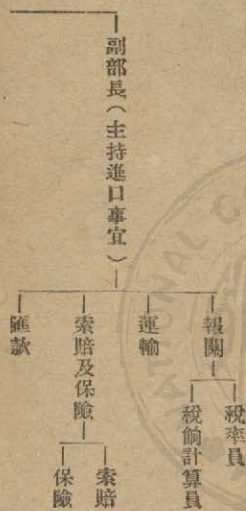 副部長(主持進口事宜)
報關
稅率員
稅餉計算員
運輸
索賠及保險
索賠
保險
匯款